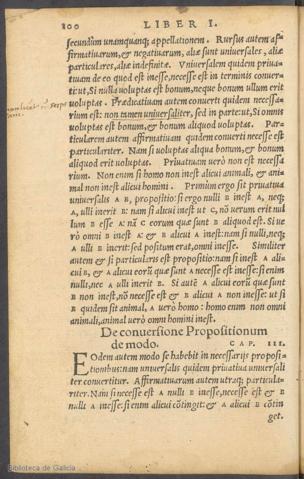 100 LIBER I.
secundùm unamquamq; appellationem. Rursus autem af-
firmatiuarum, & negatiuarum, aliæ sunt uniuersales, aliæ
particulares, aliæ indefinitæ. Vniuersalem quidem priua-
tiuam de eo quod est inesse, necesse est in terminis conuer-
ti: ut, Si nulla uoluptas est bonum, neque bonum ullum erit
uoluptas. Prædicatiuam autem conuerti quidem necessa-
rium est: non tamen uniuersaliter, sed in parte: ut, Si omnis
uoluptas est bonum, & bonum aliquod uoluptas. Par-
ticularem autem affirmatiuam quidem conuerti necesse est
particulariter. Nam si uoluptas aliqua bonum, & bonum
aliquod erit uoluptas. Priuatiuam uerò non est necessa-
rium. Non enim si homo non inest alicui animali, & ani-
mal non inest alicui homini. Primùm ergo sit priuatiua
uniuersalis A B, propositio: si ergo nulli B inest A, neq;
A, ulli inerit B: nam si alicui inest ut C, nō uerum erit nul
lum B esse A: nā C eorum quæ sunt B aliquod est. Si ue
rò omni B inest A & B alicui A inest: nam si nulli, neq;
A ulli B inerit: sed positum erat, omni inesse. Similiter
autem & si particularis est propositio: nam si inest A ali-
cui B, & A alicui eorū quæ sunt A necesse est inesse: si enim
nulli, nec A ulli inerit B. Si autē A alicui eorū quæ sunt
B non inest, nō necesse est & B alicui A non inesse: ut si
B quidem sit animal, A uerò homo: homo enim non omni
animali, animal uerò omni homini inest.
De conuersione Propositionum
de modo. CAP. III.
EOdem autem modo se habebit in necessarijs proposi-
tionibus: nam uniuersalis quidem priuatiua uniuersali
ter conuertitur. Affirmatiuarum autem utraq; particula-
riter. Nam si necesse est A nulli B inesse, necesse est & B
nulli A inesse: si enim alicui cōtingit: & A alicui B cōtin
get.
Biblioteca de Galicia